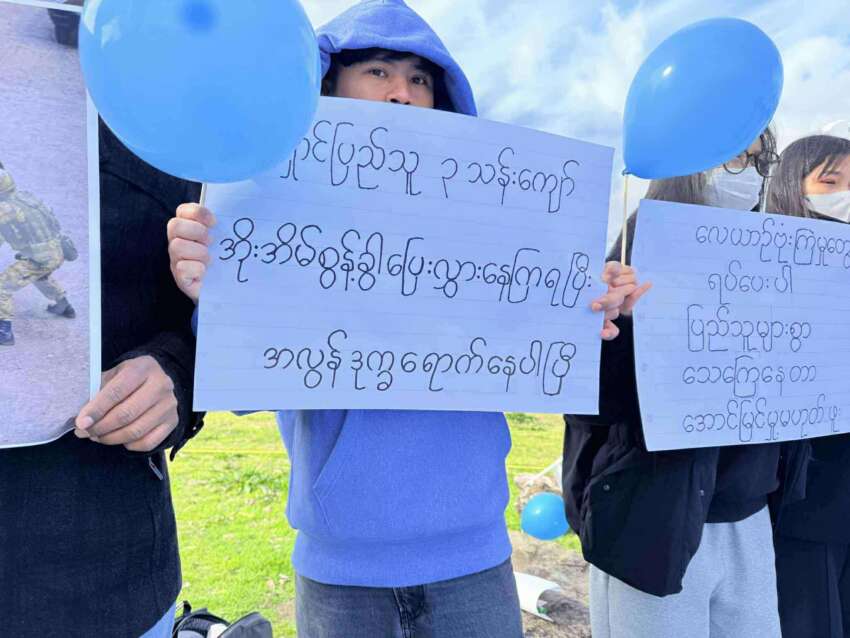 ပြည်သူ ၃ သန်းကျော်
အိုးအိမ်စွန့်ခွါပြေးလွှားနေကြရပြီး
အလွန်ဒုက္ခရောက်နေပါပြီ
လေယာဉ်ဗုံးကြဲမှုတွေ
ရပ်ပေးပါ
ပြည်သူများစွာ
သေကြေနေတာ
အောင်မြင်မှုမဟုတ်ဖူး